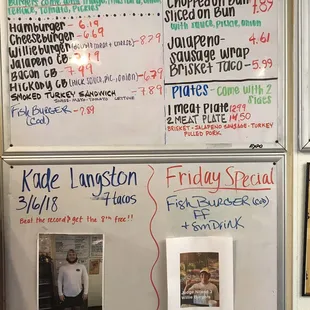 Burgers come with
Hamburger - 6.19
Cheeseburger - 6.69
Willieburger (double meat & cheese) - 8.29
Jalapeno CB - 7.19
Bacon CB - 7.99
Hickory CB (hick sauce, pic, onion) - 6.79
Smoked Turkey Sandwich - 7.89
Fish Burger - 7.89
(Cod)
Sliced on Bun
with sauce, pickle, onion
4.89
Jalapeno-
Sausage Wrap
4.61
Brisket Taco - 5.99
Plates - come with 2
Sides
1 Meat Plate 12.99
2 Meat Plate 14.50
Brisket - Jalapeno Sausage - Turkey
Pulled Pork
Kade Langston
3/6/18 7 tacos
Beat the record & get the 8th free!!
Friday Special
Fish Burger (cod)
FF
+ Sm Drink